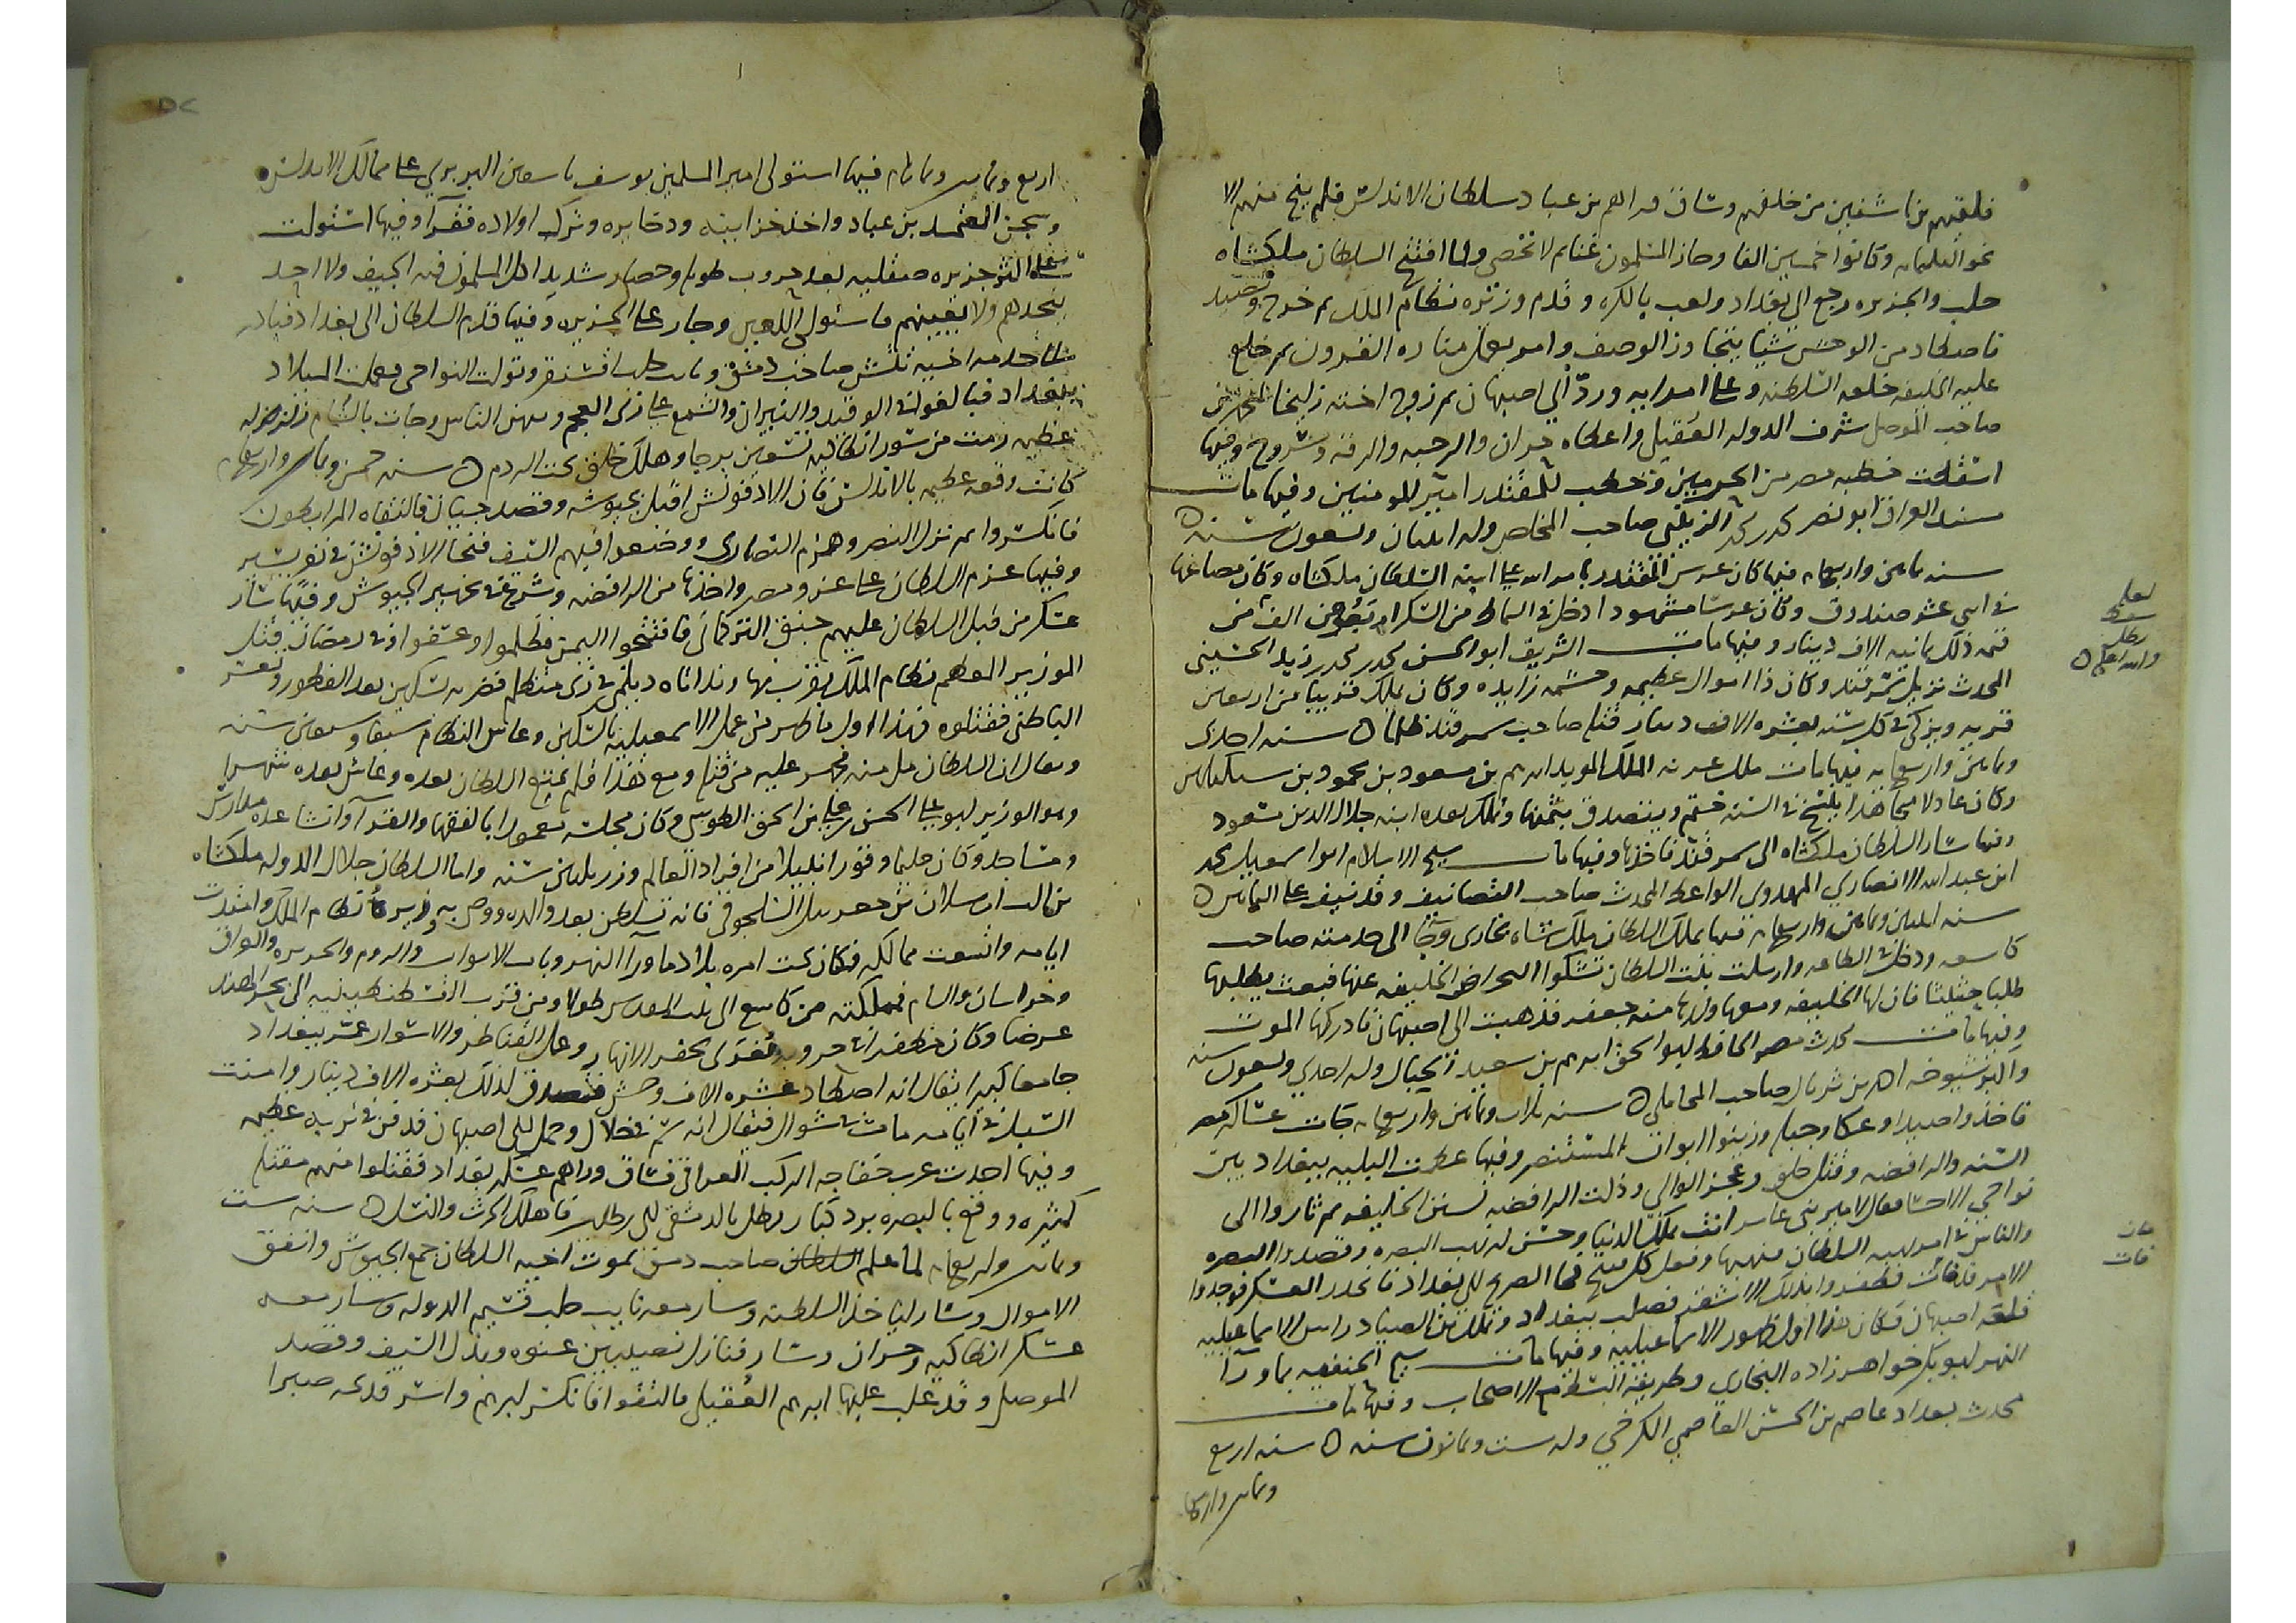 فلقيهم بن تاشفين من خلفهم وساق وراهم بن عباد سلطان الاندلس فلم ينج منهم الا
نحو الثلثمايه وكانوا خمسين الفا وحاز المسلمون غنايم لا تحصى ولما افتتح السلطان ملكشاه
حلب والجزيره رجع الى بغداد ولعب بالكره وقدم وزيره نظام الملك ثم خرج وتصيد
فاصطاد من الوحش شيا يتجاوز الوصف وامر بعمل مناره القرون ثم خلع
عليه الخليفه خلعه السلطنه وعلى امرايه وردّ الى اصبهان ثم زوج اخته زليخا
صاحب الموصل شرف الدوله العُقيلي واعطاه حران والرحبه والرقه وسروج وفيها
اسقطت خطبه مصر من الحرمين وخطب للمقتدر امير المومنين وفيها مات
مسند العراق ابو نصر محمد بن محمد الزينبي صاحب المخلص وله اثنان وتسعون سنه
سنه ثمانين واربعمايه فيها كان عرس المقتدر بامر الله على ابنة السلطان ملكشاه وكان مصاغها
في اثنى عشر صندوق وكان عرسا مشهودا ادخل في السماط من السكر اربعون الف من
ثمن ذلك ثمانيه الاف دينار وفيها مات الشريف ابو الحسن محمد بن محمد بن زيد الحسيني
المحدث نزيل سمرقند وكان ذا اموال عظيمه وحشمه زايده وكان يملك قريبا من اربعين
قريه ويزكي في كل سنه بعشره الاف دينار قتله صاحب سمرقند ظلما سنه احدى
وثمانين واربعمايه فيها مات ملك غزنه الملك المويد ابرهيم بن مسعود بن محمود بن سبكتكين
وكان عادلا مجاهدا ينسخ في السنه ختمه ويتصدق بثمنها وتملك بعده ابنه جلال الدين مسعود
وفيها سار السلطان ملكشاه الى سمرقند فاخذها وفيها مات شيخ الاسلام ابو اسمعيل
ابن عبد الله الانصاري الهروي الواعظ المحدث صاحب التصانيف وقد نيف على الثمانين
سنه اثنين وثمانين واربعمايه فيها تملك السلطان ملكشاه بخارى وجا الى خدمته صاحب
كاشغر ودخل في الطاعه وارسلت بنت السلطان تشكوا اعراض الخليفه عنها فبعث يطلبها
طلبا حثيثا فاذن لها الخليفه ومعها ولدها منه جعفر فذهبت الى اصبهان فادركها الموت
وفيها مات محدث مصر الحافظ ابو اسحق ابرهيم بن سعيد الحبال وله احدي وتسعون سنه
واكبر شيوخه احمد بن ثرثال صاحب المحاملي سنه ثلاث وثمانين واربعمايه جات عساكر مصر
فاخذوا صيدا وعكا وجبيل وزينوا ابواب المستنصر وفيها عظمت البليه ببغداد بين
السنه والرافضه وقتل خلق وعجز الوالي وذلت الرافضه لسنن الخليفه ثم ثاروا الى
نواحي الاحسا فقال لامير بني عامر انت تملك الدنيا وحسن له نهب البصره وقصدوا البصره
والناس في امر لهيبه السلطان فنهبها وفعل كل قبيح فجا الصريخ الى بغداد فانحدر العسكر فوجدوا
الامر قد فات فظفروا بذلك الاشقر فصلب ببغداد وتملك بن الصباح راس الاسماعيليه
قلعه اصبهان فكان هذا اول ظهور الاسماعيليه وفيها مات شيخ الحنفيه بما ورا
النهر ابو بكر خواهر زاده البخاري وطريقته ابسط طرايق الاصحاب وفيها مات
محدث بغداد عاصم بن الحسن العاصمي الكرخي وله ست وثمانون سنه سنه اربع
وثمانين واربعمايه
لعله
سقط
رطل
والله اعلم
فات
اربع وثمانين وثمانمايه فيها استولى امير المسلمين يوسف بن تاشفين البربري على ممالك الاندلس
وسجن المعتمد بن عباد واخذ خزاينه ودخايره وترك اولاده فقرآ وفيها استولت
الفرنج على اكثر جزيره صقليه بعد حروب طويله وحصار شديد اكل المسلمون فيه الجيف ولا احد
ينجدهم ولا يغيثهم فاستولى اللعين وجار على الجزيره وفيها قدم السلطان الى بغداد فبادر
الى خدمته اخيه تتش صاحب دمشق ونايب حلب اقسنقر وتولت النواحي وعملت الميلاد
ببغداد فبالغوا في الوقيد والنيران والشمع على زى العجم وبهر الناس وجات بالشام زلزله
عظيمه رمت من سور انطاكيه تسعين برجا وهلك خلق تحت الردم سنه خمس وثمانين واربعمايه
كانت وقعه عظيمه بالاندلس فان الاذفونش اقبل بجيوشه وقصد جيان فالتقاه المرابطون
فانكسروا ثم نزل النصر وهزم النصارى ووضعوا فيهم السيف فنجا الاذفونش في نفر يسير
وفيها عزم السلطان على غزو مصر واخذها من الرافضه وشرع في تجهيز الجيوش وفيها سار
عسكر من قبل السلطان عليهم جنبق التركماني فافتتحوا اليمن فظلموا وعسفوا في رمضان قتل
الوزير المعظم نظام الملك بقرب نهاوند اتاه ديلمي في زي متظلم فضربه بسكين بعد الفطور
الباطني فقتلوه فهذا اول ما ظهر من عمل الاسمعيليه بالسكين وعاش النظام سبعا وسبعين سنه
ويقال ان السلطان مل منه فجسر عليه من قتله ومع هذا فلم يمتع السلطان بعده وعاش بعده شهرا
وهو الوزير ابو على الحسن بن على بن اسحق الطوسي وكان مجلسه معمورا بالفقها والقرآ وانشا عده مدارس
ومساجد وكان حليما وقورا نبيلا من افراد العالم وزر ثلثين سنه واما السلطان جلال الدوله ملكشاه
بن الب ارسلان بن جغريبك السلجوقي فانه تسلطن بعد والده ووصى به وزيره نظام الملك وامتدت
ايامه واتسعت ممالكه فكان تحت امره بلاد ماورا النهر وباب الابواب والروم والجزيره والعراق
وخراسان والشام فمملكته من كاشغر الى بيت المقدس طولا ومن قرب القسطنطينيه الى بحر الهند
عرضا وكان مظفرا في حروبه مُغرى بحفر الانهار وعمل القناطر والاسوار عمر ببغداد
جامعا كبيرا يقال انه اصطاد عشره الاف وحش فتصدق لذلك بعشره الاف دينار وامنت
السبل في ايامه مات في شوال فيقال انه سُم في خلال وحمل الى اصبهان فدفن في تربه عظيمه
وفيها اخذت عرب خفاجه الركب العراقي فساق وراهم عسكر بغداد فقتلوا منهم مقتله
كثيره ووقع بالبصره برد كبار رطل بالدمشقي الى رطلين فاهلك الحرث والنسل سنه ست
وثمانين واربعمايه لما علم السلطان صاحب دمشق بموت اخيه السلطان جمع الجيوش وانفق
الاموال وسار لياخذ السلطنه وسار معه نايب حلب قسيم الدوله وسار معه
عسكر انطاكيه وحران وسار فنازل نصيبين عنوه وبذل السيف وقصد
الموصل وقد غلب عليها ابرهيم العُقيلي فالتقوا فانكسر ابرهيم واسر فذبحه صبرا